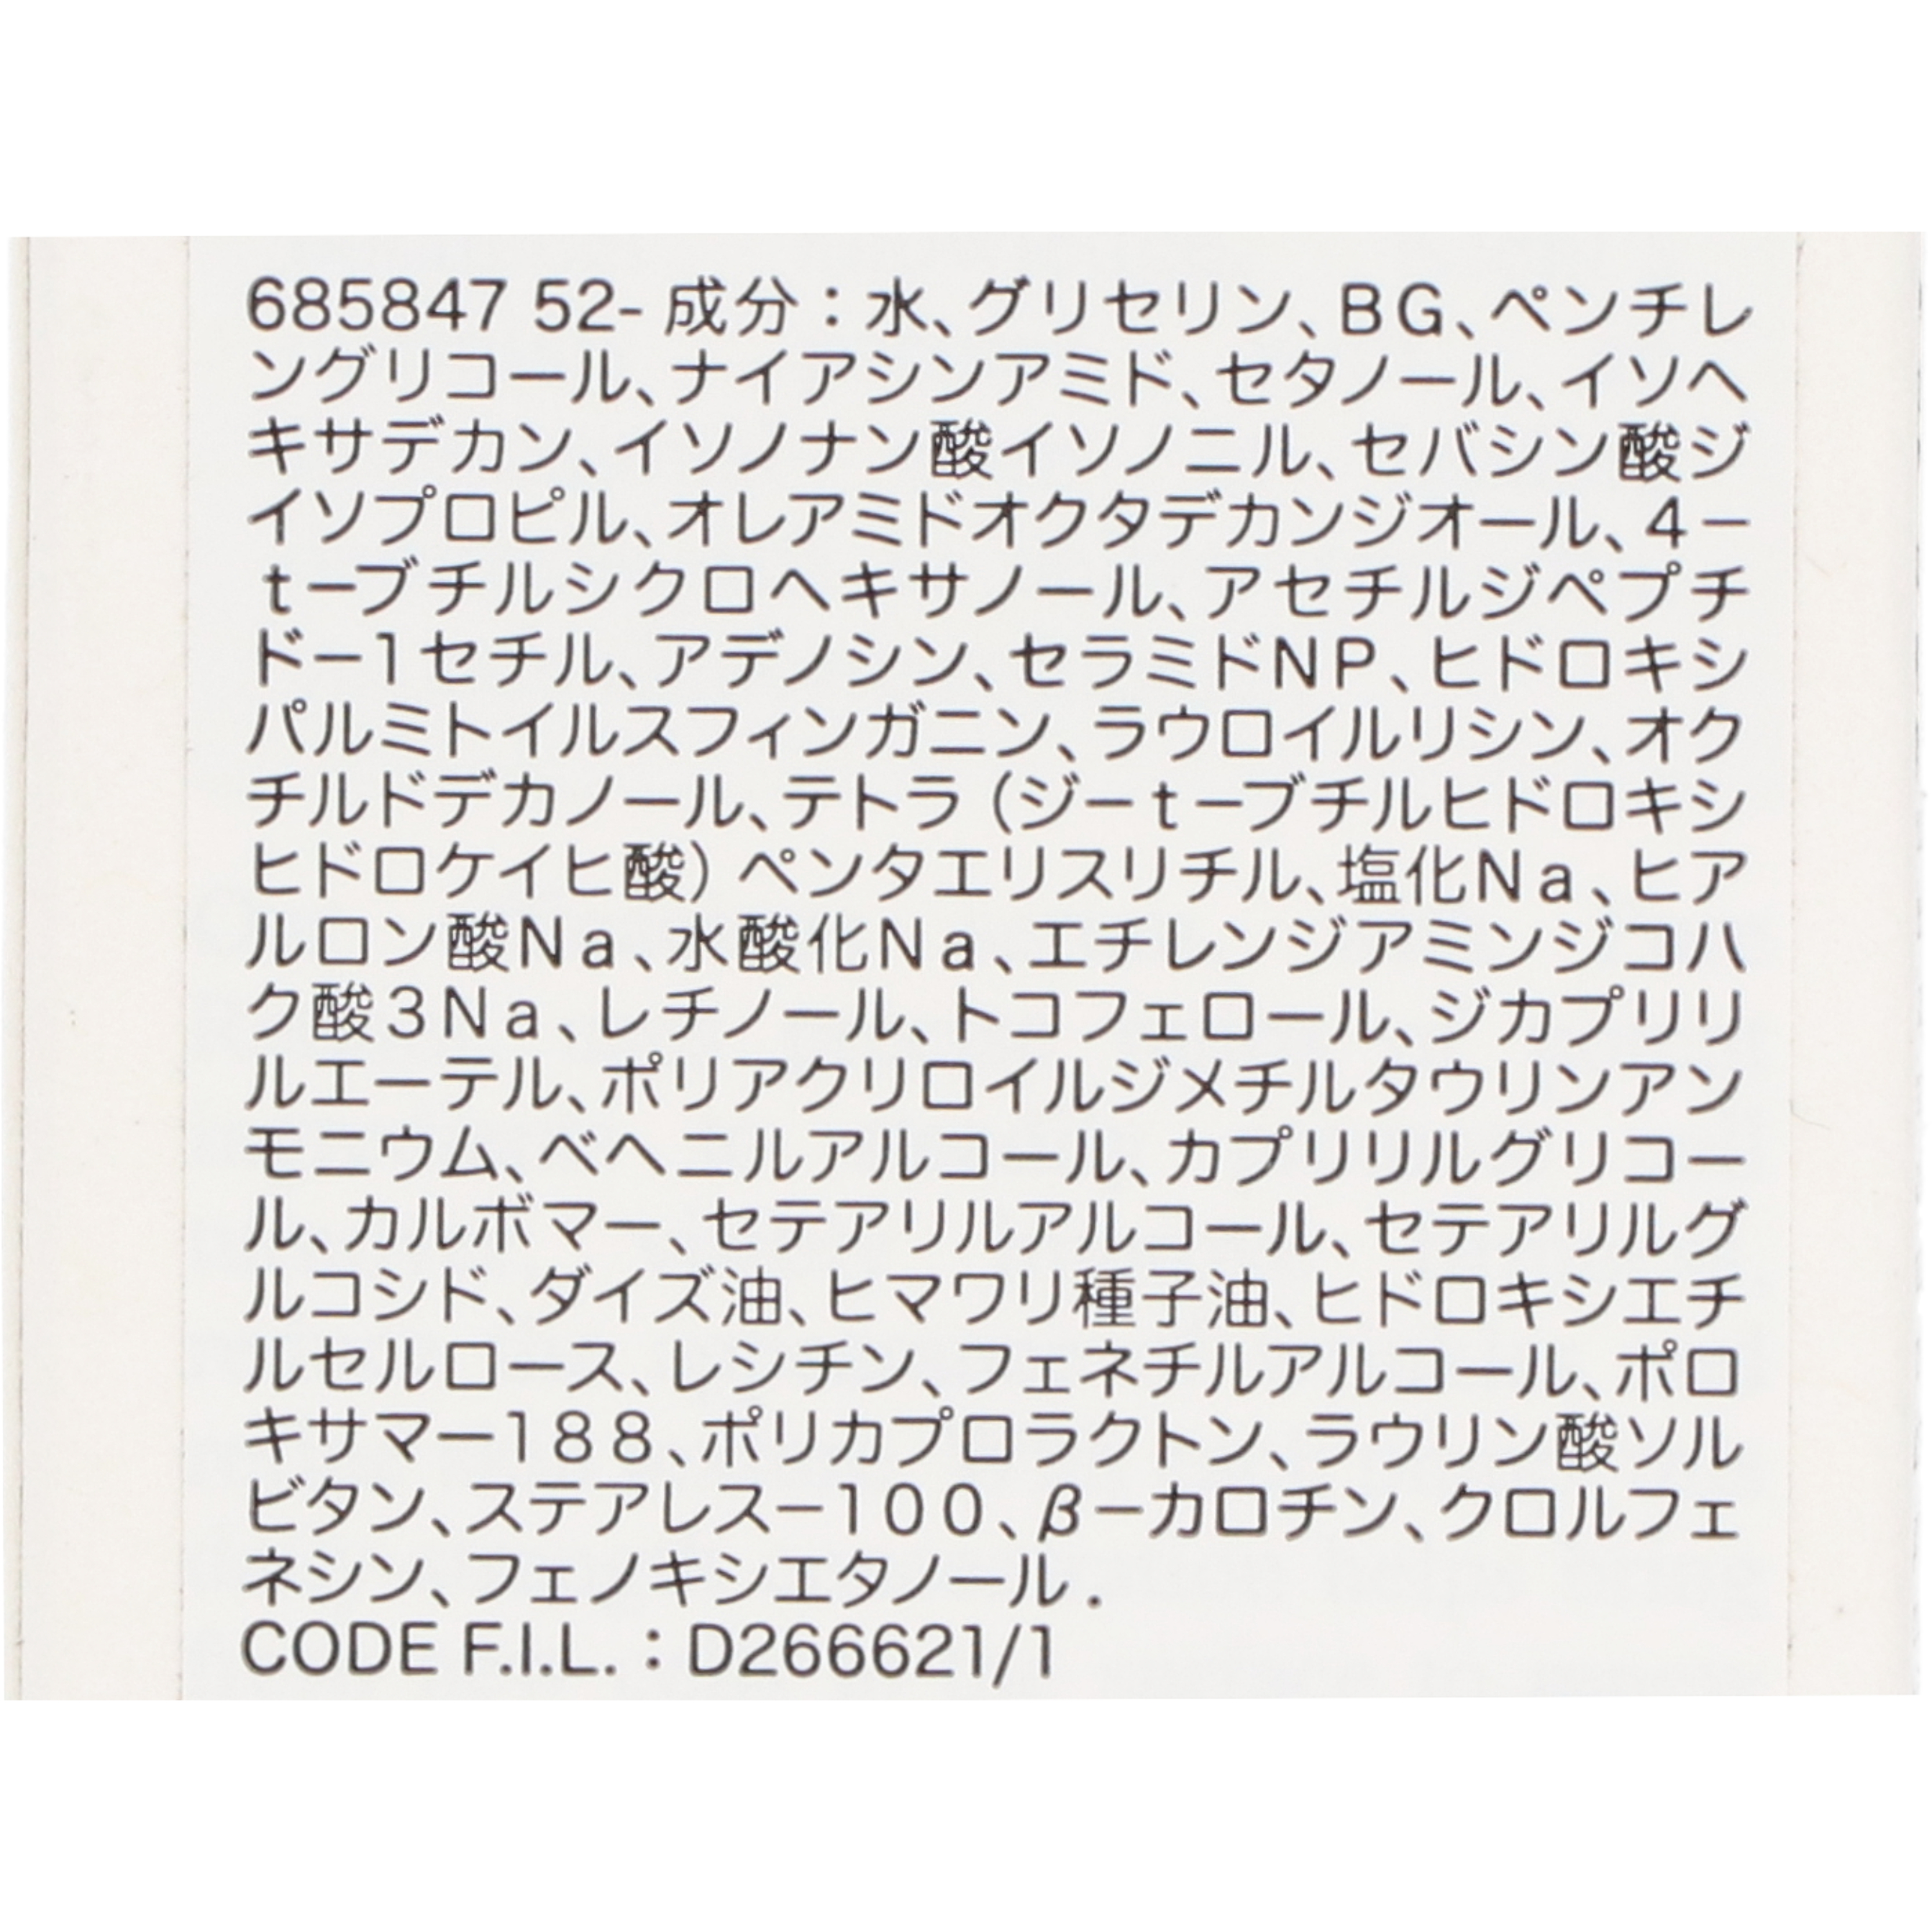 685847 52- 成分：水、グリセリン、BG、ペンチレ
ングリコール、ナイアシンアミド、セタノール、イソヘ
キサデカン、イソノナン酸イソノニル、セバシン酸ジ
イソプロピル、オレアミドオクタデカンジオール、4－
t－ブチルシクロヘキサノール、アセチルジペプチ
ド－1セチル、アデノシン、セラミドNP、ヒドロキシ
パルミトイルスフィンガニン、ラウロイルリシン、オク
チルドデカノール、テトラ（ジ－t－ブチルヒドロキシ
ヒドロケイヒ酸）ペンタエリスリチル、塩化Na、ヒア
ルロン酸Na、水酸化Na、エチレンジアミンジコハ
ク酸3Na、レチノール、トコフェロール、ジカプリリ
ルエーテル、ポリアクリロイルジメチルタウリンアン
モニウム、ベヘニルアルコール、カプリリルグリコー
ル、カルボマー、セテアリルアルコール、セテアリルグ
ルコシド、ダイズ油、ヒマワリ種子油、ヒドロキシエチ
ルセルロース、レシチン、フェネチルアルコール、ポロ
キサマー188、ポリカプロラクトン、ラウリン酸ソル
ビタン、ステアレス－100、β－カロチン、クロルフェ
ネシン、フェノキシエタノール.
CODE F.I.L.：D266621/1